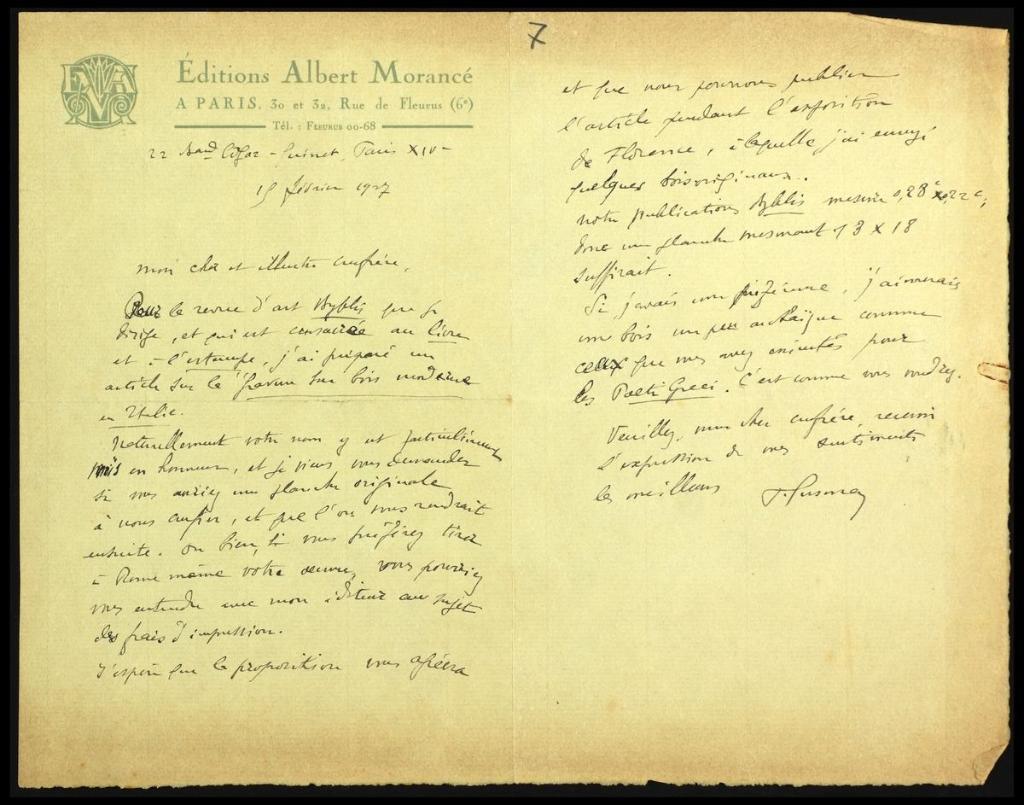 7
Éditions Albert Morancé
A PARIS, 30 et 32, Rue de Fleurus (6e)
Tél. : FLEURUS 00-68
22 Boulᵈ Edgar-Quinet, Paris XIVᵉ
15 février 1927
mon cher et illustre confrère,
Pour la revue d'art Byblis que je
dirige, et qui est consacrée au livre
et à l'estampe, j'ai préparé un
article sur la gravure sur bois moderne
en Italie.
Naturellement votre nom y est particulièrement
mis en honneur, et je viens vous demander
si vous auriez une planche originale
à nous confier, et que l'on vous rendrait
ensuite. ou bien, si vous préférez tirer
à Rome même votre oeuvre, vous pourriez
vous entendre avec mon éditeur au sujet
des frais d'impression.
J'espère que la proposition vous agréera
et que nous pourrons publier
l'article pendant l'exposition
de Florence, à laquelle j'ai envoyé
quelques bois originaux.
notre publications Byblis mesure 0,28 x 0,22 c,
donc une planche mesurant 13 x 18
suffirait.
Si j'avais une préférence, j'aimerais
un bois un peu archaïque comme
ceux que vous avez exécutés pour
les Poeti Greci. C'est comme vous voudrez.
Veuillez, mon cher confrère, recevoir
l'expression de mes sentiments
les meilleurs